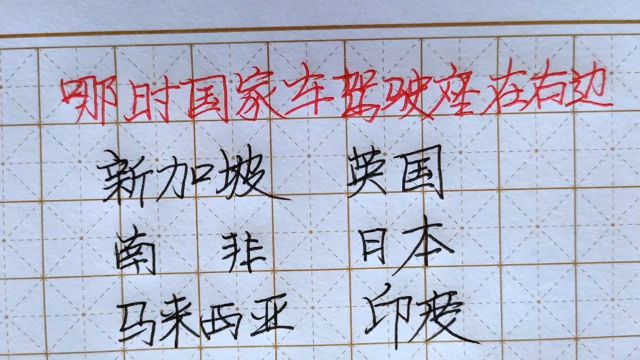 哪时国家车驾驶座在右边
新加坡 英国
南非 日本
马来西亚 印度